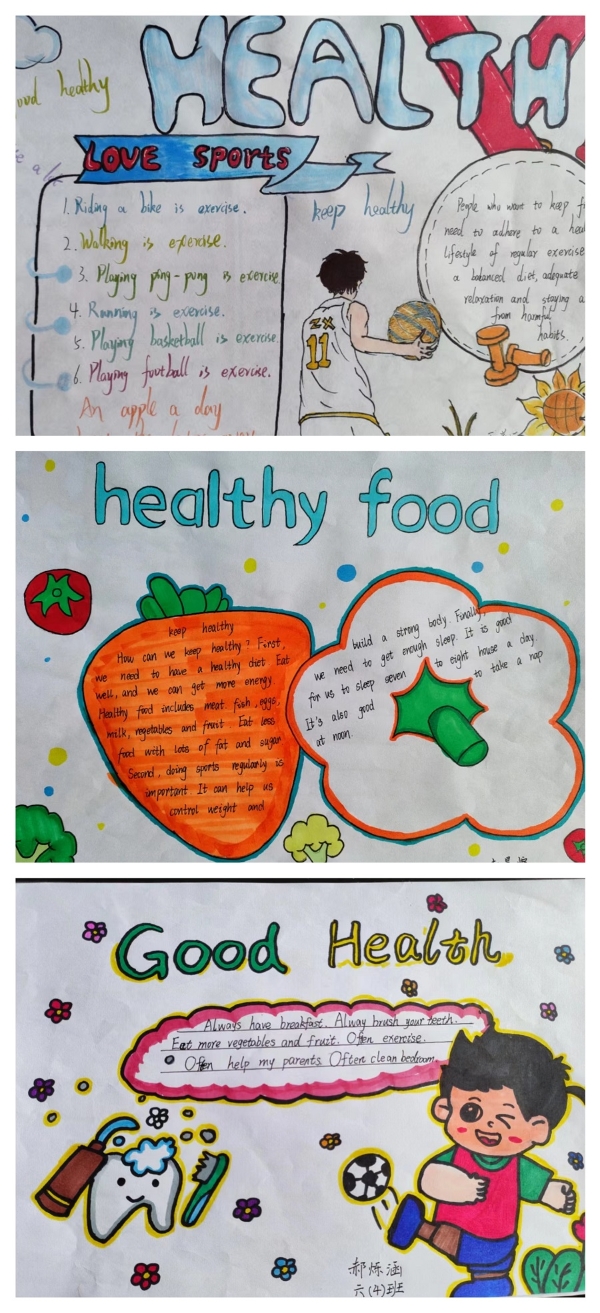 HEALTH
healthy
LOVE sports
1. Riding a bike is exercise.
2. Walking is exercise.
3. Playing ping-pong is exercise.
4. Running is exercise.
5. Playing basketball is exercise.
6. Playing football is exercise.
An apple a day
keep healthy
ZX
11
People who want to keep
need to adhere to a
lifestyle of regular exercise
a balanced diet, adequate
relaxation and staying a
from harmful
habits.
healthy food
keep healthy
How can we keep healthy? First,
we need to have a healthy diet. Eat
well, and we can get more energy
Healthy food includes meat, fish, eggs,
milk, vegetables and fruit. Eat less
food with lots of fat and sugar
Second, doing sports regularly is
important. It can help us
control weight and
build a strong body. Finally,
we need to get enough sleep. It is good
for us to sleep seven to eight house a day.
It's also good to take a nap
at noon.
Good Health
Always have breakfast. Alway brush your teeth.
Eat more vegetables and fruit. Often exercise.
Often help my parents. Often clean bedroom.
郝烁涵
六(4)班